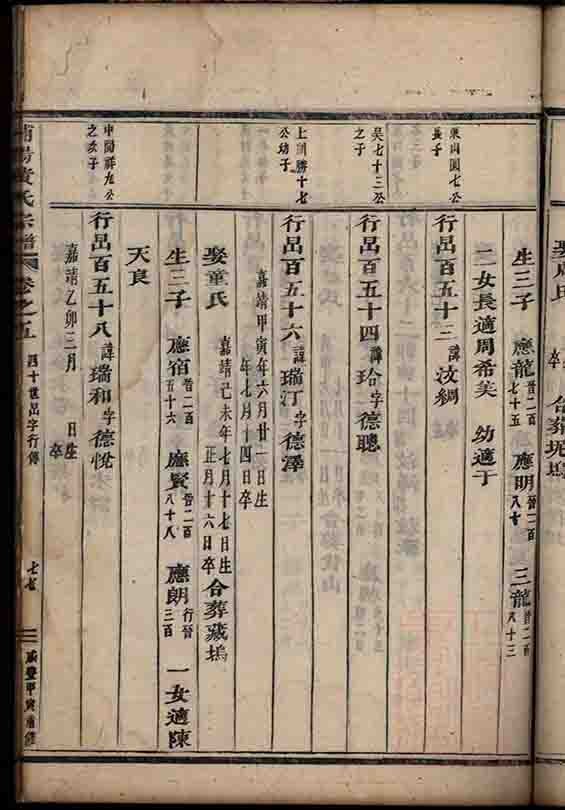 生三子 應龍晉二百七十五 應明晉二百八十 三龍晉二百八十三
二女長適周希美 幼適于
七公長子
行呂百五十三諱汝綢
吳七十三公之子
行呂百五十四諱珨字德聰
上頭勝十七公幼子
行呂百五十六諱瑞汀字德澤
嘉靖甲寅年六月廿一日生
年七月十四日卒
娶童氏 嘉靖己未年七月十七日生 正月十六日卒 合葬藏塢
生三子 應宿晉二百五十六 應賢晉二百八十八 應朗行晉三百 一女適陳
天良
中陽祥九公之次子
行呂百五十八諱瑞和字德悅
嘉靖乙卯三月 日生
卒
氏宗譜 卷之五 四十世呂字行傳 咸豐甲寅重修